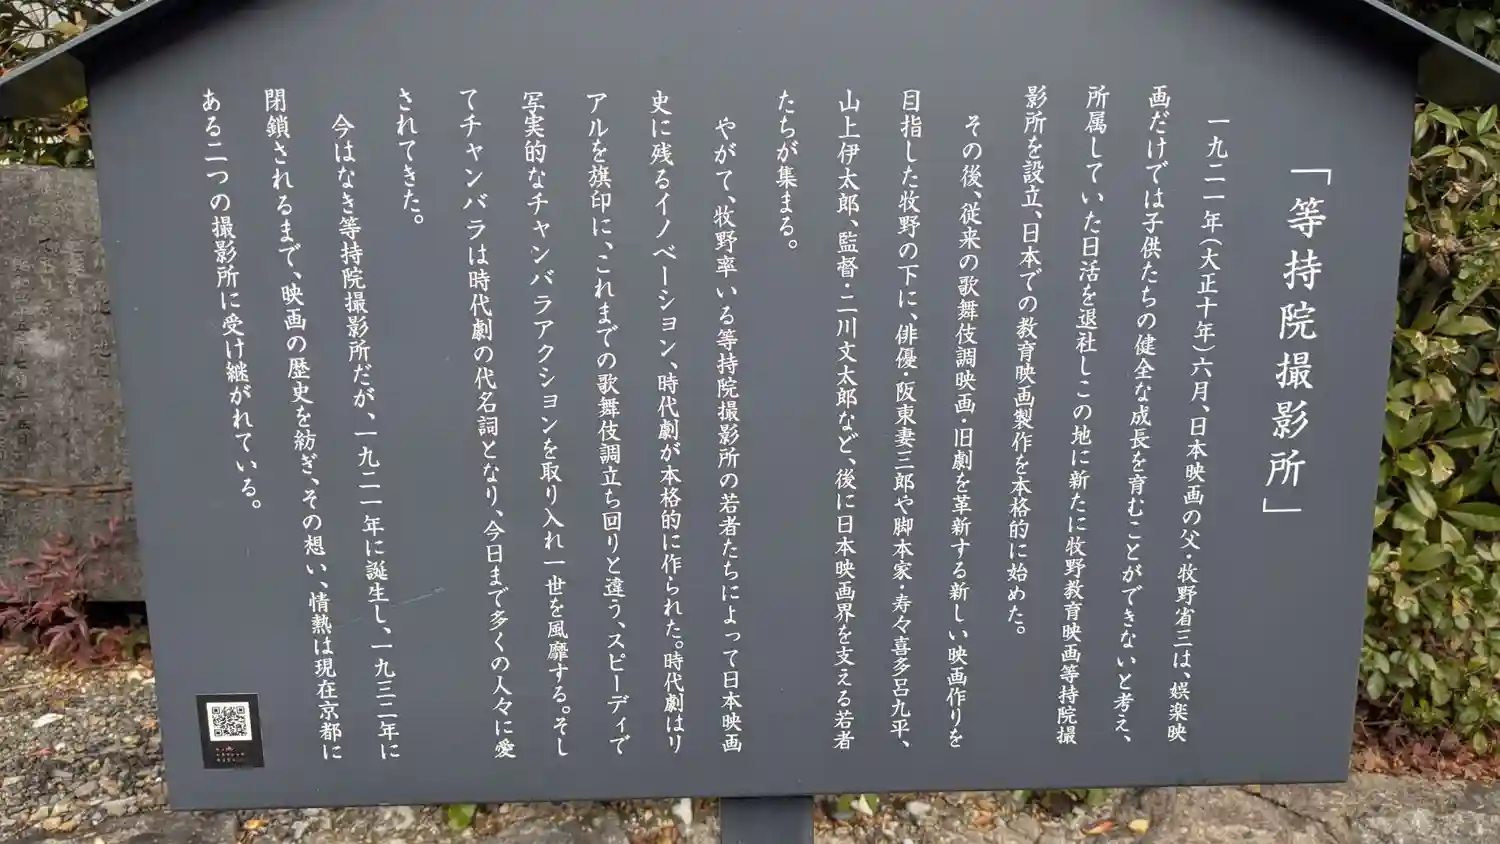 「等持院撮影所」
一九二一年(大正十年)六月、日本映画の父・牧野省三は、娯楽映
画だけでは子供たちの健全な成長を育むことができないと考え、
所属していた日活を退社しこの地に新たに牧野教育映画等持院撮
影所を設立、日本での教育映画製作を本格的に始めた。
その後、従来の歌舞伎調映画・旧劇を革新する新しい映画作りを
目指した牧野の下に、俳優・阪東妻三郎や脚本家・寿々喜多呂九平、
山上伊太郎、監督・二川文太郎など、後に日本映画界を支える若者
たちが集まる。
やがて、牧野率いる等持院撮影所の若者たちによって日本映画
史に残るイノベーション、時代劇が本格的に作られた。時代劇はリ
アルを旗印に、これまでの歌舞伎調立ち回りと違う、スピーディで
写実的なチャンバラアクションを取り入れ一世を風靡する。そし
てチャンバラは時代劇の代名詞となり、今日まで多くの人々に愛
されてきた。
今はなき等持院撮影所だが、一九二一年に誕生し、一九三二年に
閉鎖されるまで、映画の歴史を紡ぎ、その想い、情熱は現在京都に
ある二つの撮影所に受け継がれている。